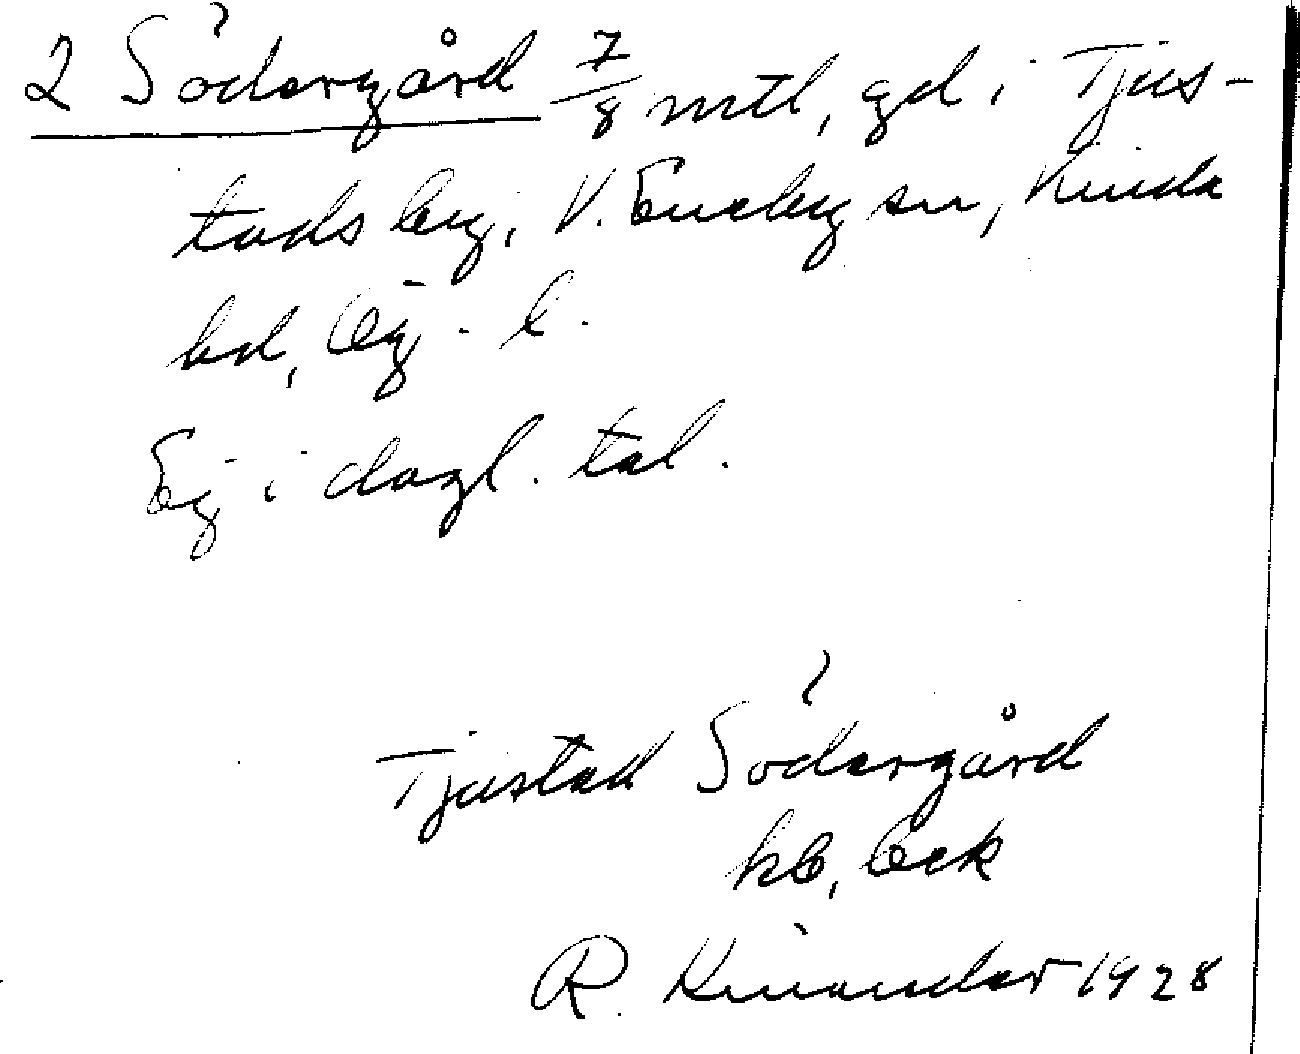 2 Södergård 7/8 mtl, gd i Tjus-
tads by, V. Eneby sn, Kinda
hd, Ög. l.
Ej i dagl. tal.
Tjustad Södergård
kb, bek
R. Kinander 1928